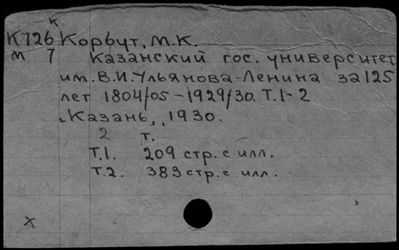 к
К726 Корбут, М.К.
м 7 Казанский гос. университет
им. В.И. Ульянова-Ленина за 125
лет 1804/05-1929/30. Т.1-2
Казань, 1930.
2 т.
Т.1. 209 стр. с илл.
Т.2. 383 стр. с илл.
х